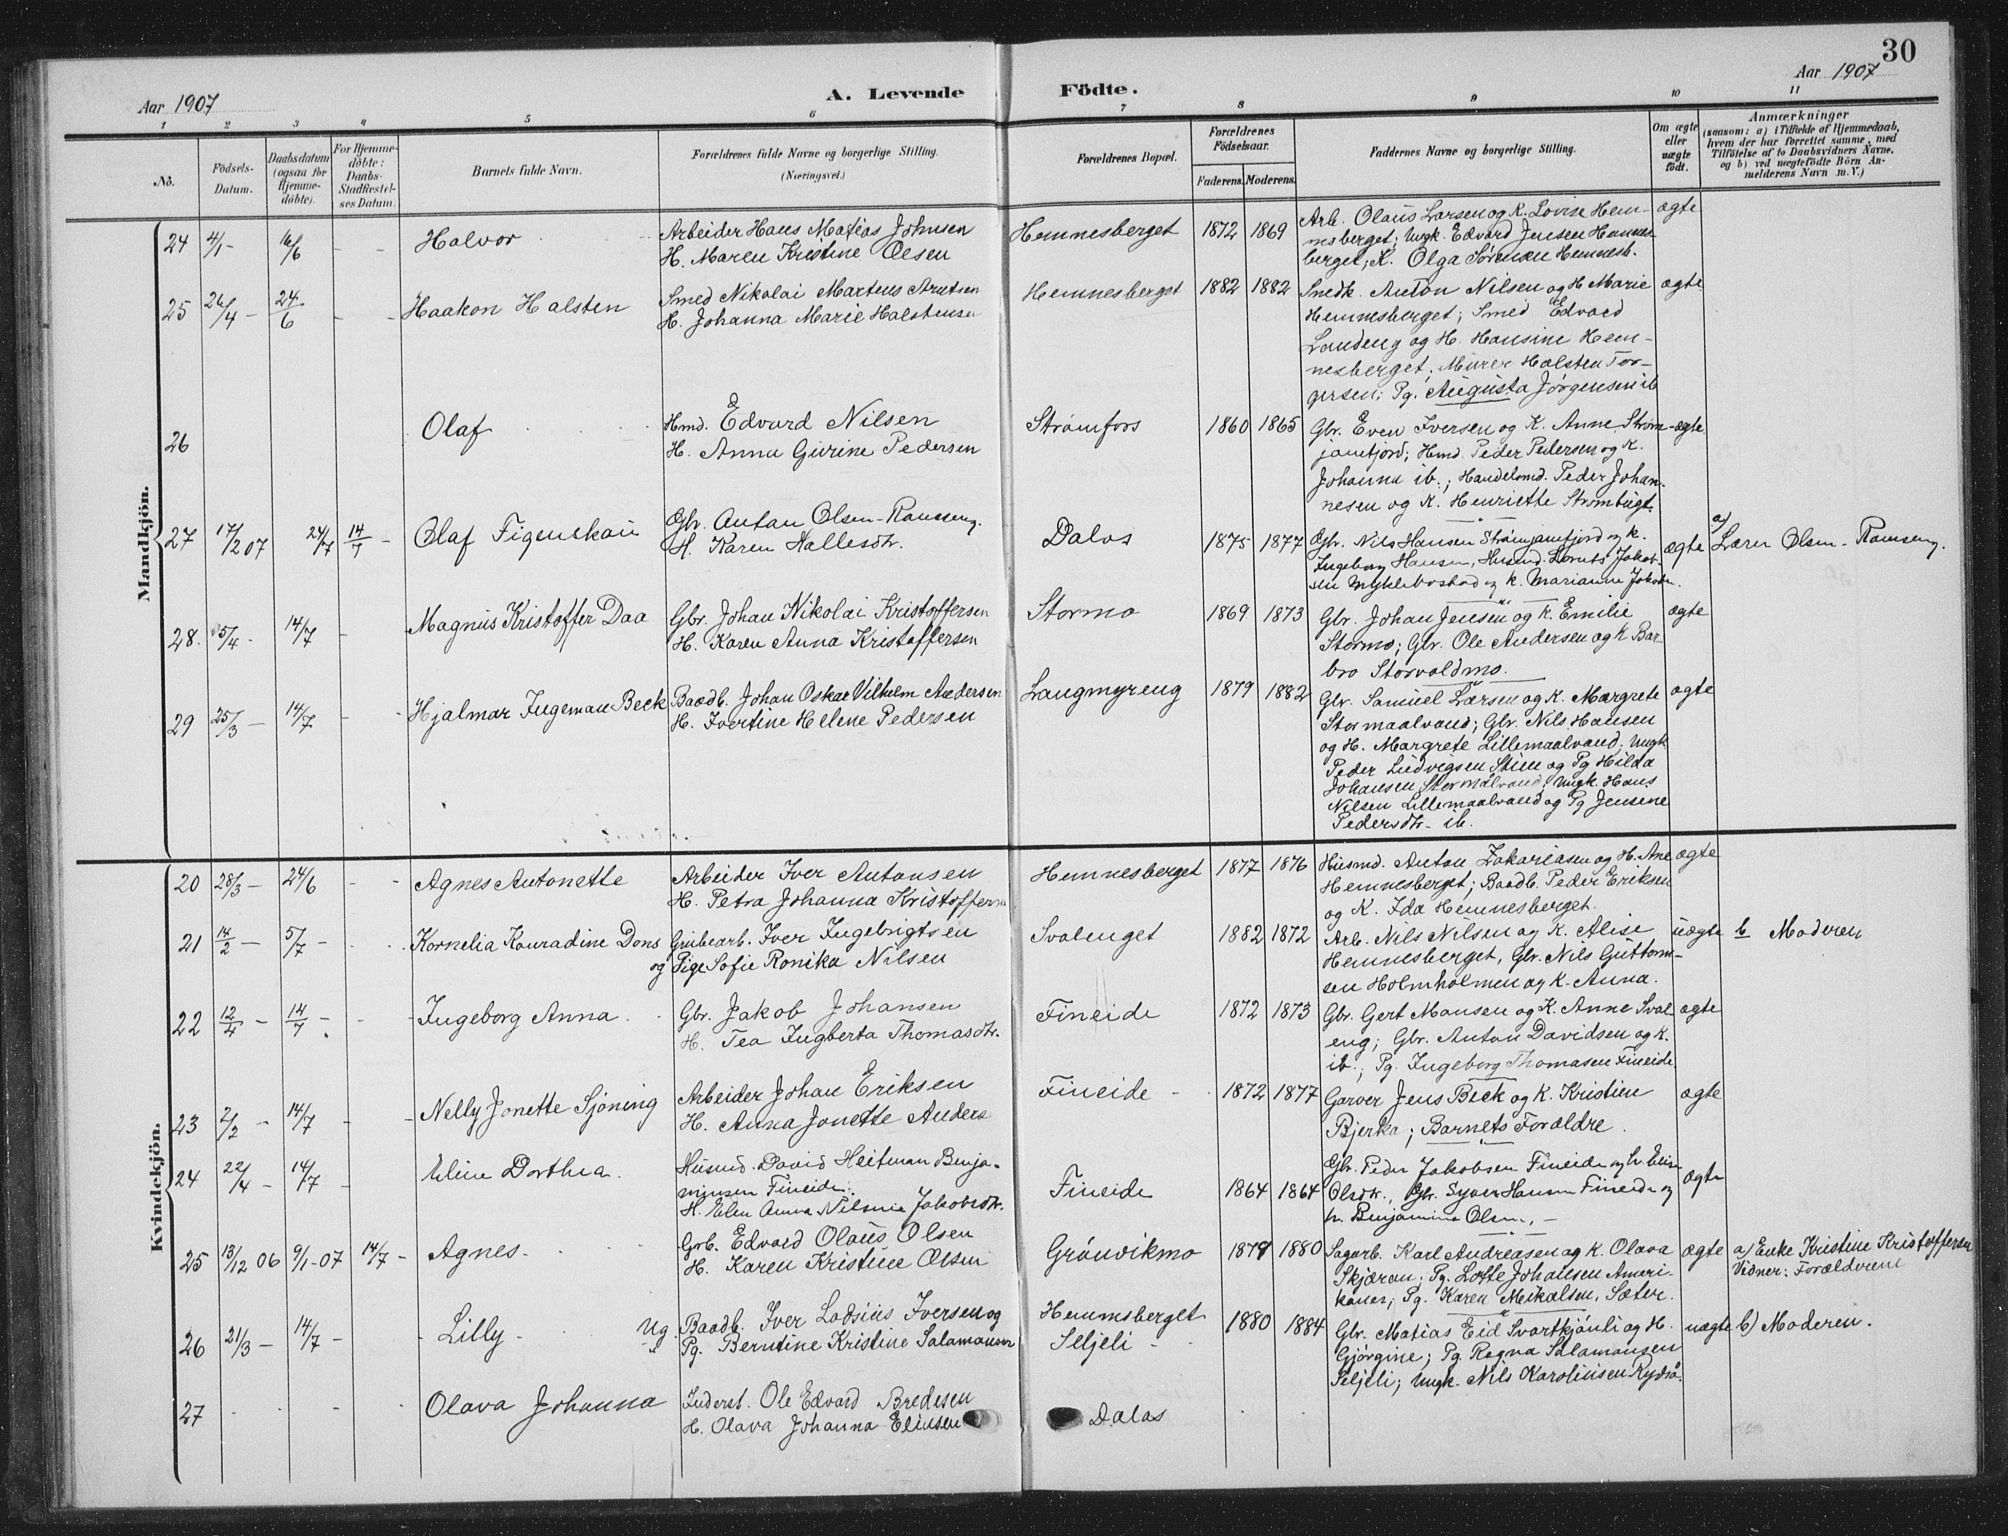 30
Aar 1907
A. Levende
Födte.
Aar 1907
1 2 3 4 5 6 7 8 9 10 11
No.
Födsels-Datum.
Daabsdatum (ogsaa for Hjemmedöbte).
For Hjemmedöbte: Daabs-Stadfæstelses Datum.
Barnets fulde Navn.
Forældrenes fulde Navne og borgerlige Stilling.
(Næringsvei.)
Forældrenes Bopæl.
Forældrenes Födselsaar.
Faderens. Moderens.
Faddernes Navne og borgerlige Stilling.
Om ægte eller uægte födt.
Anmærkninger
(saasom: a) i Tilfælde af Hjemmedaab,
hvem der har forrettet samme, med
Tilföielse af to Daabsvidners Navne.
og b) ved uægtefödte Börn Anmelderens Navn m.V.)
Mandkjön.
24 4/1 - 16/6 - - Halvor
Arbeider Hans Matias Johnsen
H. Maren Kristine Olsen
Hemnesberget 1872 1869
Arb. Olaus Larsen og K. Lovise Hem-
nesberget; Ungk. Edvard Jensen Hemnes-
berget; K. Olga Sørensen Hemnesb.
ægte
25 26/4 - 24/6 - - Haakon Halsten
Smed Nikolai Martens Arntsen
H. Johanna Marie Halstensen
Hemnesberget 1882 1882
Snedk. Anton Nilsen og H Marie
Hemnesberget; Smed Edvard
Landeng og H. Hansine Hem-
nesberget; Murer Halsten Tor-
gersen; Pg. Augusta Jörgensen ib
ægte
26 Olaf
Hmd. Edvard Nilsen
H. Anna Gurine Pedersen
Strømfors 1860 1865
Gbr. Even Iversen og K. Anne Strøm-
janfjord; Hmd. Peder Pedersen og K.
Johanna ib.; Handelsmd. Peder Johan-
nesen og K. Henriette Strømbugt.
ægte
27 17/2 07 24/7 14/7 - Olaf Figenskau
Gbr. Antan Olsen-Ranseng.
H. Karen Hallesdtr.
Dalos 1875 1877
Gbr. Nils Hansen Strømjanfjord og k.
Ingeborg Hansen, Husmd. Lornts Jakob-
sen Myklebostad og k. Marianne Jakobs.
ægte
a) Lærer Olsen - Ramseng.
28. 5/4 - 14/7 - Magnus Kristoffer Daa
Gbr. Johan Nikolai Kristoffersen
H. Karen Anna Kristoffersen
Stormo 1869 1873
Gbr. Johan Jensen og K. Emilie
Stormo; Gbr. Ole Andersen og K Bar-
bro Storvoldmo.
ægte
29 25/3 - 14/7 - - Hjalmar Ingeman Beck
Baadb. Johan Oskar Vilhelm Andersen
H. Ivertine Helene Pedersen
Langmyreng 1879 1882
Gbr. Samuel Larsen og K. Margrete
Stormaalvand; Gbr. Nils Hansen
og H. Margrete Lillemaalvand; Ungk.
Peder Ludvigsen Stien og Pg Hilda
Johansen Stormålvand; Ungk. Hans
Nilsen Lillemaalvand og Pg Jensine
Pedersdtr. ib.
ægte
Kvindekjön.
20 28/3 - 24/6 - - Agnes Antonette
Arbeider Iver Antonsen
H. Petra Johanna Kristoffersen
Hemnesberget 1877 1876
Husmd. Anton Zakariasen og H. Ane
Hemnesberget; Baadb. Peder Eriksen
og K. Ida Hemnesberget.
ægte
21 14/2 - 5/7 - Kornelia Konradine Dons
Grubearb. Iver Ingebrigtsen
og Pige Sofie Ronika Nilsen
Svalenget 1882 1872
Arb. Nils Nilsen og K. Alise
Hemnesberget, Gbr. Nils Guttorm-
sen Holmholmen og k. Anna.
uægte b Moderen
22 12/4 - 14/7 - - Ingeborg Anna
Gbr. Jakob Johansen
H. Tea Ingberta Thomasdtr.
Fineide 1872 1873
Gbr. Gert Monsen og K. Anne Sval-
eng; Gbr. Anton Davidsen og k.
ib.; Pg. Ingeborg Thomasen Fineide
ægte
23 2/2 - 14/7 - - Nelly Jonette Sjøning
Arbeider Johan Eriksen
H. Anna Jonette Anders
Fineide 1872 1877
Garver Jens Beck og K. Kristien
Bjerka; Barnets Forældre.
ægte
24 22/4 - 14/7 - Eline Dorthea.
Husmd. David Heitman Benja-
minsen Fineide.
H. Elen Anna Nilsine Jakobsdtr.
Fineide 1864 1864
Gbr. Peder Jakobsen Fineide og h. Elise
Olsdtr., Gbr. Syver Hansen Fineide og
h. Benjamine Olsen, -
ægte
25 13/12 06 9/1-07 14/7 - Agnes.
Grb. Edvard Olaus Olsen
H. Karen Kristine Olsen
Grönvikmo 1879 1880
Sagarb. Karl Andreasen og K. Olava
Skjæran; Pg. Lotte Johansen Ameri-
kaner; Pg. Karen Meikalsen, Sæter.
ægte a) Enke Kristine Kristoffersen
Vidner: Forældrene
26 21/3 - 14/7 - - Lilly
Ug Baadb. Iver Lodsius Iversen og
Pg. Berntine Kristine Salamonsen
Hemnesberget
Seljeli - 1880 1884
Gbr. Matias Eid Svartkjönli og H.
Gjörgine; Pg. Regna Salamonsen
Seljeli; Ungk. Nils Karolinsen Rydså.
uægte b) Moderen.
27 Olava Johanna
Inderst. Ole Edvard Bredesen
H. Olava Johanna Eliasen
Dalos